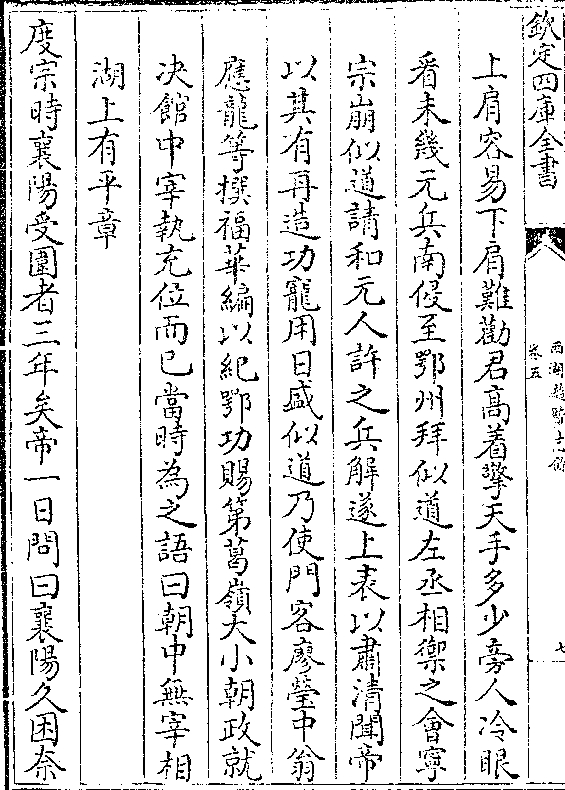 欽定四庫全書
西湖遊覽志餘
卷五
七
上肩容易下肩難勸君高着擎天手多少旁人冷眼
看未幾元兵南侵至鄂州拜似道左丞相禦之會寧
宗崩似道請和元人許之兵解遂上表以肅清聞帝
以其有再造功寵用日盛似道乃使門客廖瑩中翁
應龍等撰福華編以紀鄂功賜第葛嶺大小朝政就
決館中宰執充位而已當時為之語曰朝中無宰相
湖上有平章
度宗時襄陽受圍者三年矣帝一日問曰襄陽久困奈